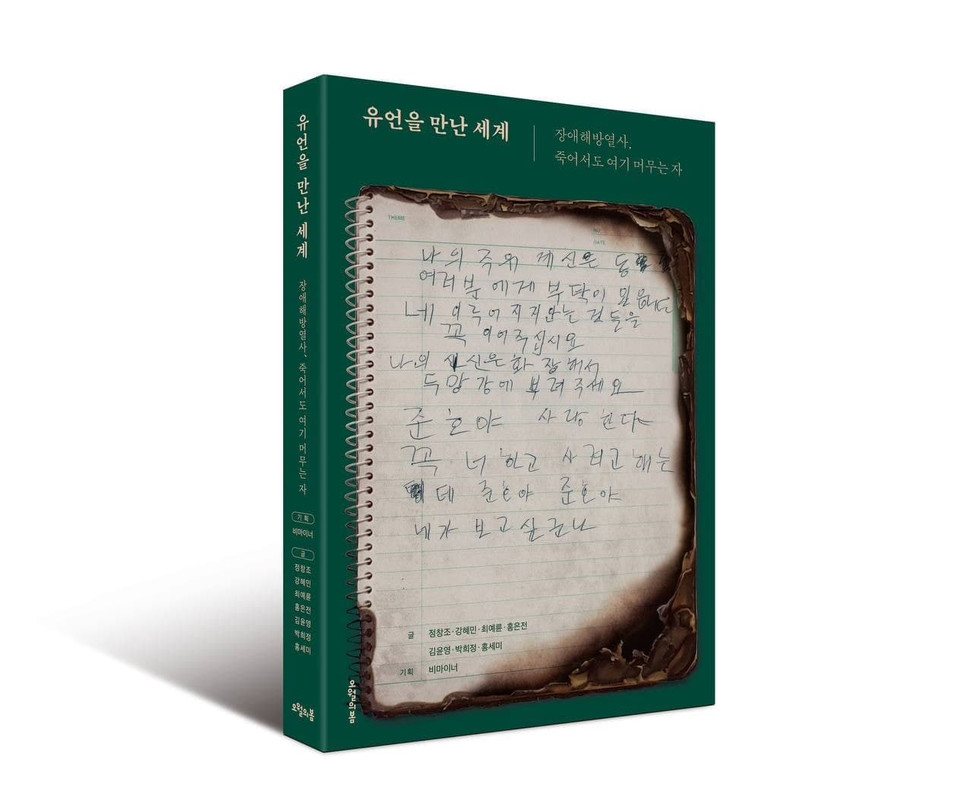 유언을 만난 세계
장애해방열사, 죽어서도 여기 머무는 자
기획
비마이너
글
정창조
강혜민
최예륜
홍은전
김윤영
박희정
홍세미
오월의봄
유언을 만난 세계
장애해방열사,
죽어서도 여기 머무는 자
나의 주위 계신은
여러분에게 부탁이 있읍니다
네 이루어지지안는 것들을
꼭 이어주십시요
나의 시신은 화장해서
두망강에 부려주세요
준호야 사랑한다
꼭 너하고 사려고 해는
데 준호야 준호야
네가 보고싶군나
글 정창조·강혜민·최예륜·홍은전
김윤영·박희정·홍세미
기획 비마이너
오월의봄